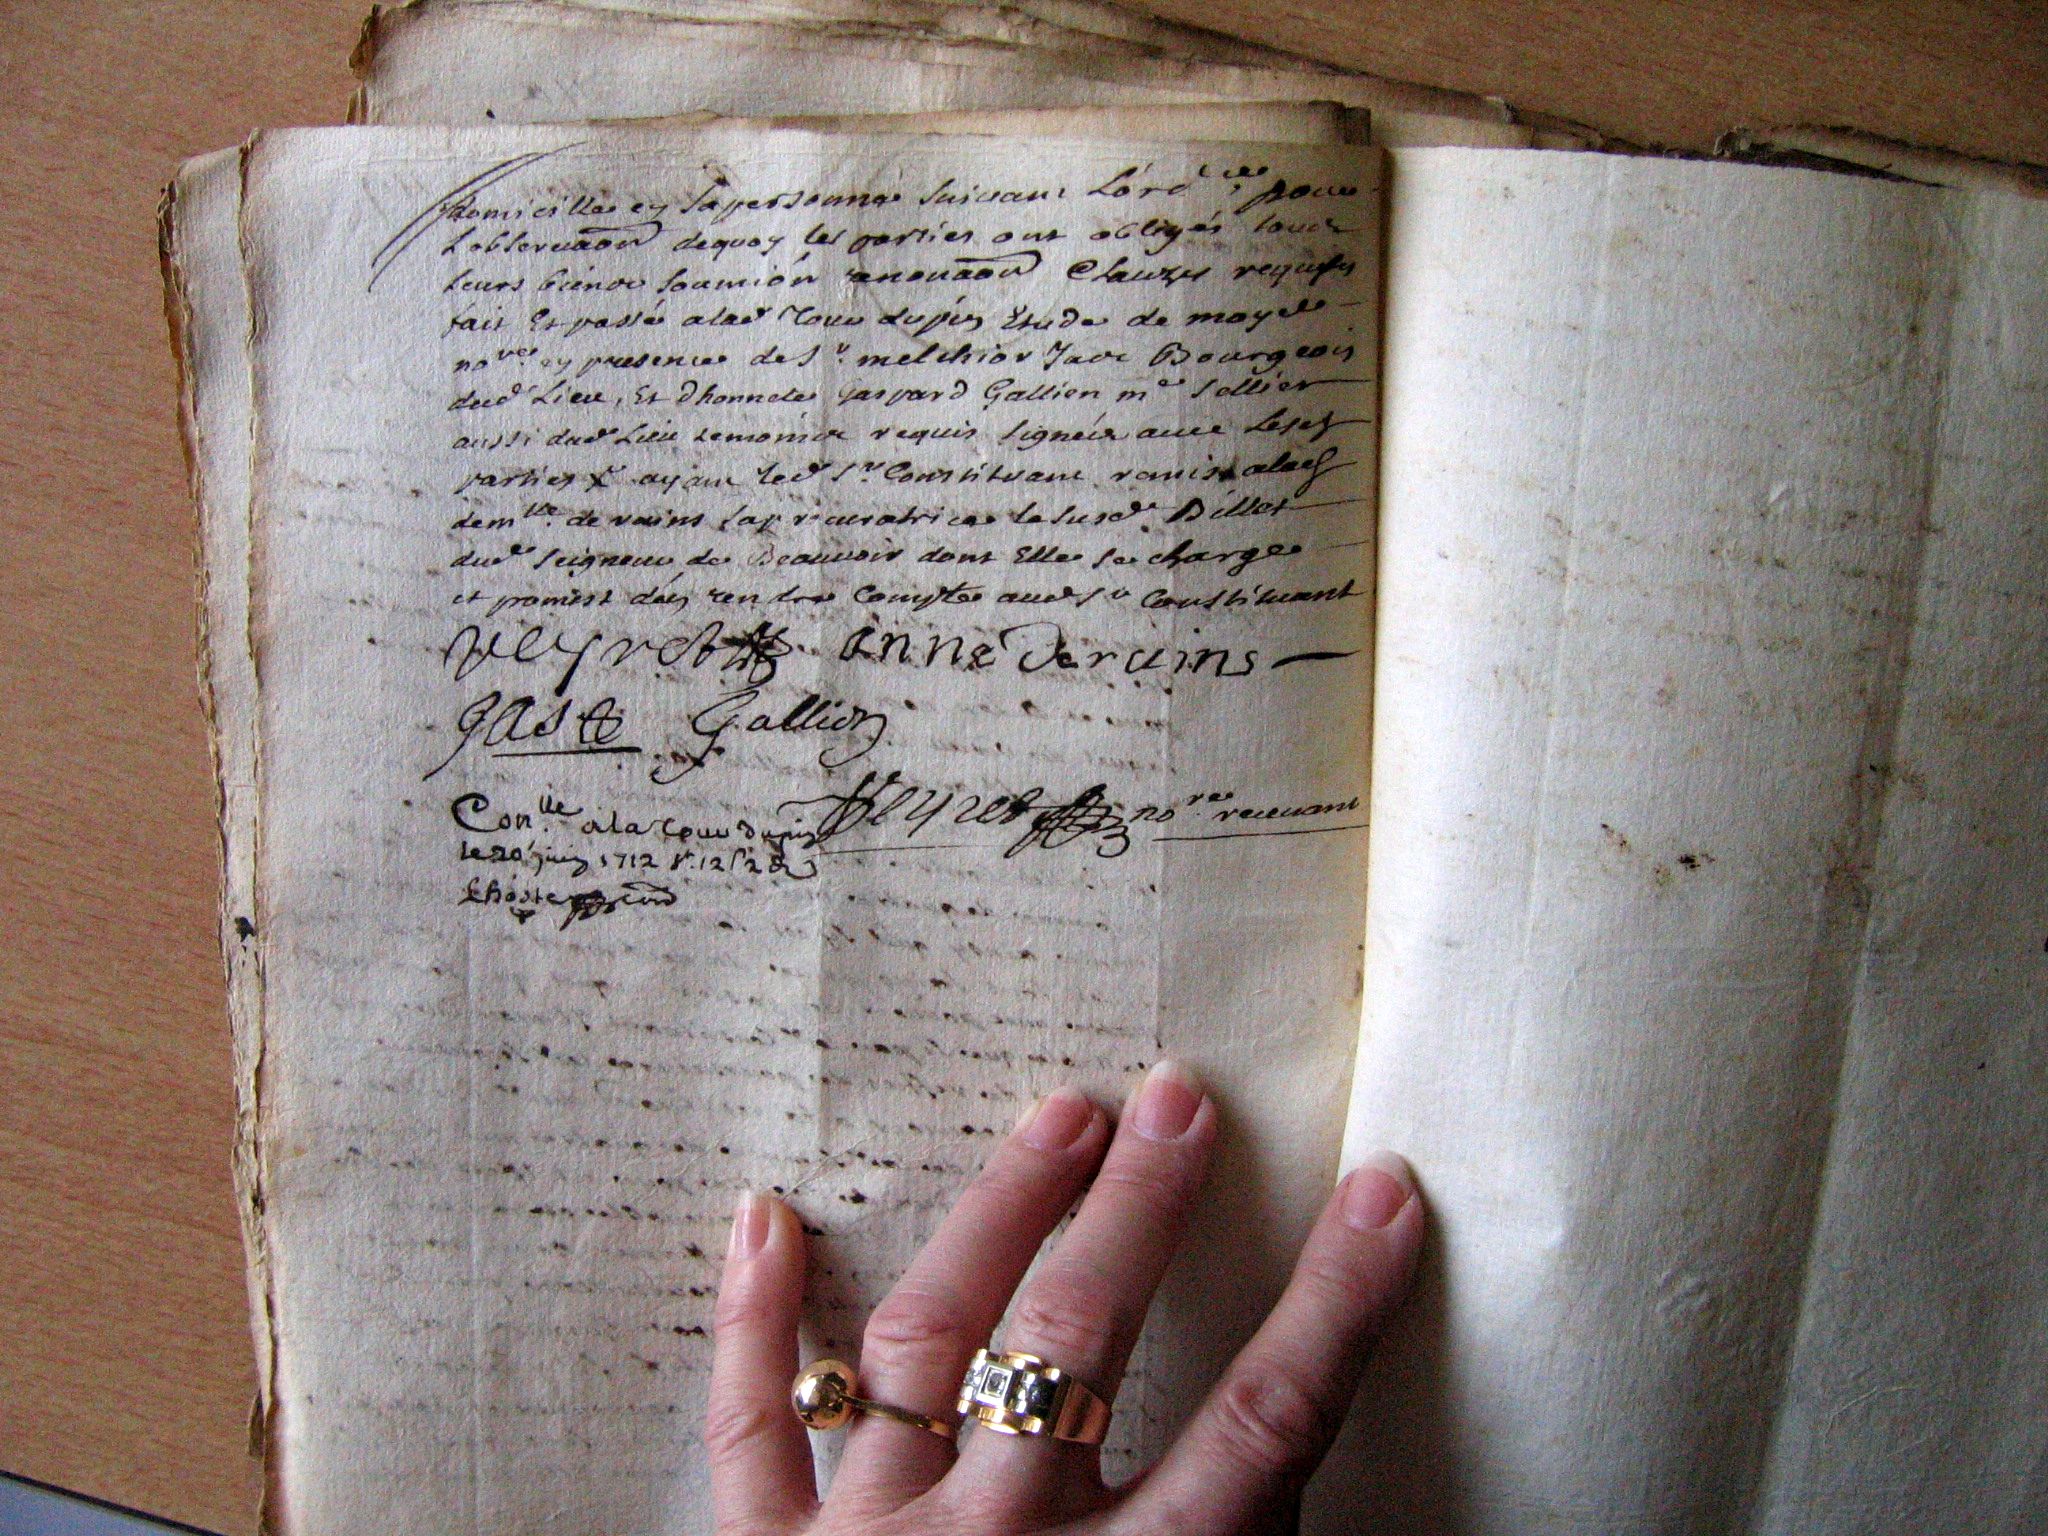 domicille en sa personne suivant L'ord^ce pour
Lobservaon dequoy les parties ont obligés tous
leurs biens soumion renonaon Clauzes requises
fait Et passé alad^e Tour dupin Etude de moyd^t
no^re en presence de S^r. melchior Bourgeois
dud^t Lieu, Et dhonnete Gaspard Gallien m^e Sellier
aussi dud^t Lieu temoins requis signés avec Lesd^
parties & ayant led^t S^r Constituant remis alad^
dem^lle. de ruins sa procuratrice le susd^t Billet
dud^t seigneur de Beauvoir dont Elle se charge
et promest d'en rendre Compte aud^t S^r Constituant
Veyret anne De ruins
Gaste Gallien
Con^lle. a la Tour dupin Veyret no^re recevant
le 20 juin 1712 12
Lhoste